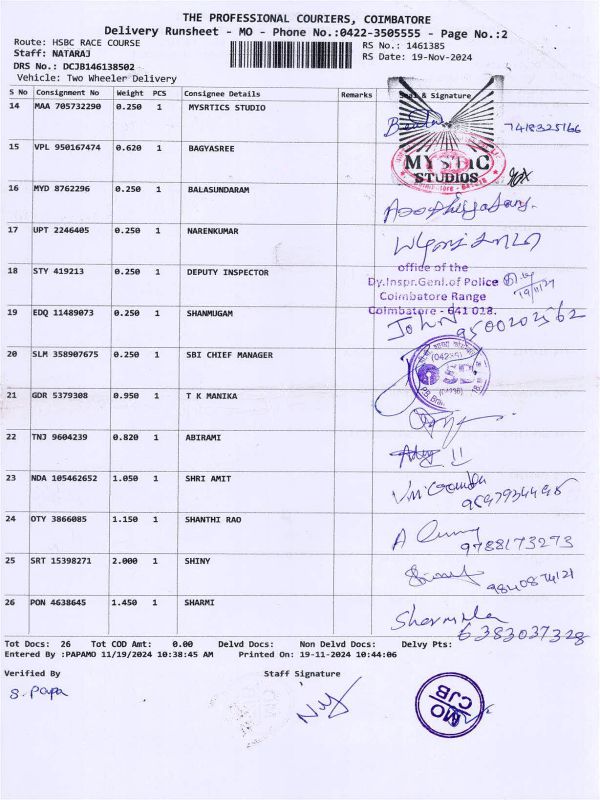 THE PROFESSIONAL COURIERS, COIMBATORE
Delivery Runsheet - MO - Phone No.:0422-3505555 - Page No.:2
Route: HSBC RACE COURSE
RS No.: 1461385
Staff: NATARAJ
RS Date: 19-Nov-2024
DRS No.: DCJB146138502
Vehicle: Two Wheeler Delivery
S No Consignment No Weight PCS Consignee Details Remarks Seal & Signature
14 MAA 705732290 0.250 1 MYSRTICS STUDIO 7418325166
15 VPL 950167474 0.620 1 BAGYASREE
MYSTIC
STUDIOS
16 MYD 8762296 0.250 1 BALASUNDARAM
17 UPT 2246405 0.250 1 NARENKUMAR
18 STY 419213 0.250 1 DEPUTY INSPECTOR
office of the
Dy.Inspr.Genl.of Police
Coimbatore Range
Coimbatore - 641 018.
19/11/24
19 EDQ 11489073 0.250 1 SHANMUGAM
John
9500202562
20 SLM 358907675 0.250 1 SBI CHIEF MANAGER
(04235)
21 GDR 5379308 0.950 1 T K MANIKA
22 TNJ 9604239 0.820 1 ABIRAMI
23 NDA 105462652 1.050 1 SHRI AMIT
24 OTY 3866085 1.150 1 SHANTHI RAO
9788173273
25 SRT 15398271 2.000 1 SHINY
9840874121
26 PON 4638645 1.450 1 SHARMI
Sharmila
6383037328
Tot Docs: 26 Tot COD Amt: 0.00 Delvd Docs: Non Delvd Docs: Delvy Pts:
Entered By :PAPAMO 11/19/2024 10:38:45 AM Printed On: 19-11-2024 10:44:06
Verified By Staff Signature
S. Papa
MO
CJB